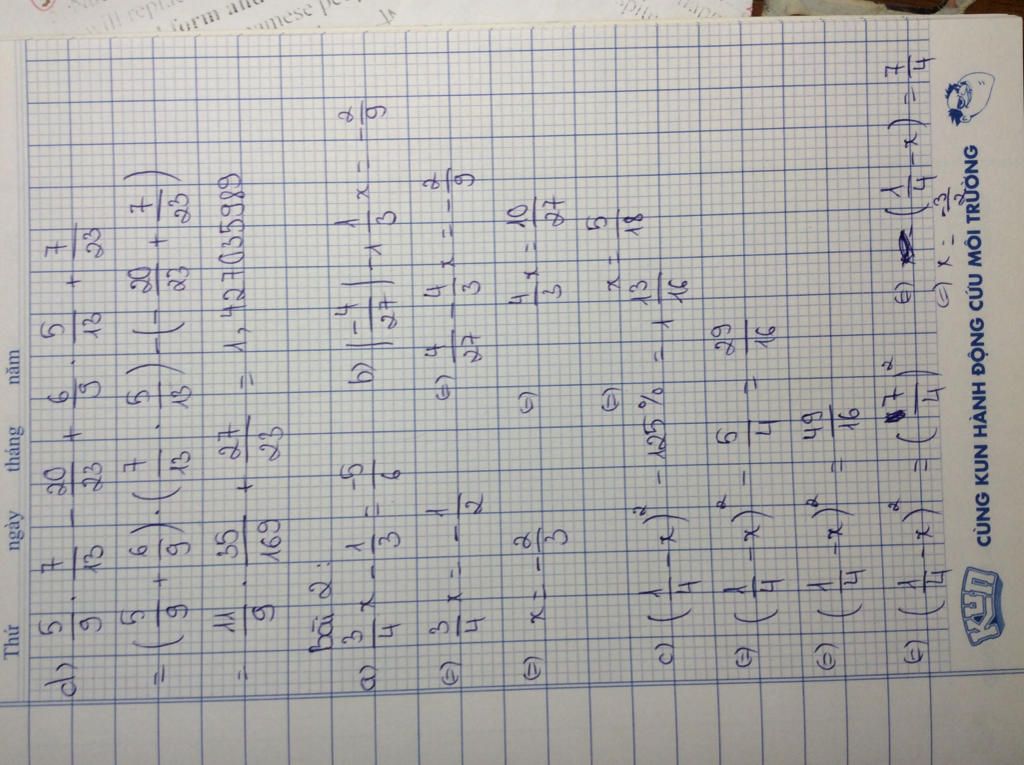 Thứ ngày tháng năm
d) 5/9 . 7/13 - 20/23 + 6/9 . 5/13 + 7/23
= (5/9 + 6/9) . (7/13 . 5/13) - (- 20/23 + 7/23)
= 11/9 . 35/169 + 27/23 = 1,427035989
bài 2:
a) 3/4 x - 1/3 = -5/6
(=) 3/4 x = - 1/2
(=) x = - 2/3
b) |-4/27| - 1 1/3 x = - 2/9
(=) 4/27 - 4/3 x = - 2/9
(=) 4/3 x = 10/27
(=) x = 5/18
c) (1/4 - x)² - 125% = 1 13/16
(=) (1/4 - x)² - 5/4 = 29/16
(=) (1/4 - x)² = 49/16
(=) (1/4 - x)² = (7/4)²
(=) (1/4 - x) = 7/4
(=) x = -3/2
KUN CÙNG KUN HÀNH ĐỘNG CỨU MÔI TRƯỜNG